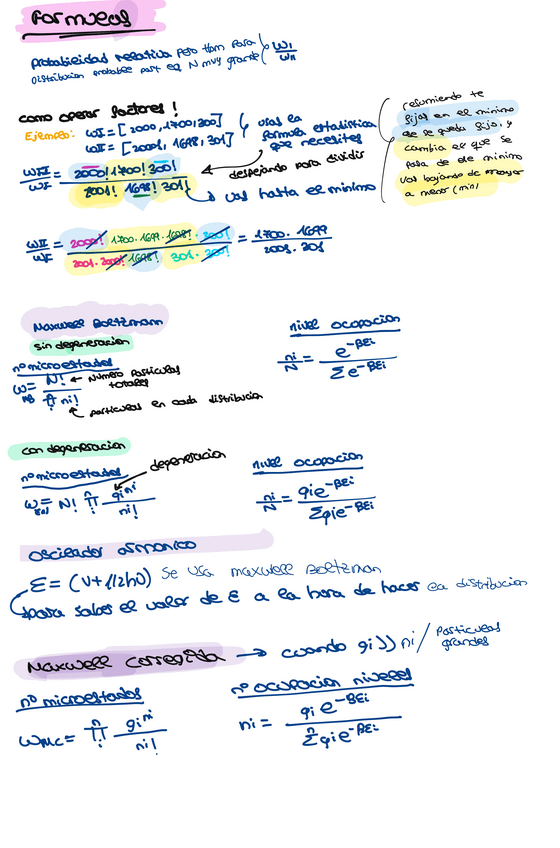 Formulas
probabilidad relativa pero tbm para
distribucion probable part eq N muy grande
ωI
ωII
como operar factores!
Ejemplo: ωI = [2000, 1700, 300]
ωII = [2001, 1698, 301]
usas la
formula estadistica
que necesites
resumiendo te
fijas en el minimo
de se queda fijo, y
cambia el que se
pasa de ese minimo
vas bajando de mayor
a menor (min)
ωII/ωI = 2000! 1700! 300! / 2001! 1698! 301!
despejando para dividir
vas hasta el minimo
ωII/ωI = 2000! · 1700 · 1699 · 1698! · 300! / 2001 · 2000! · 1698! · 301 · 300! = 1700 · 1699 / 2001 · 301
Maxwell Boltzmann
sin degeneracion
nº microestados
ω = N! / ∏ ni!
MB
Numero particulas
totales
particulas en cada distribucion
nivel ocupacion
ni/N = e^-βEi / Σe^-βEi
con degeneracion
degeneracion
nº microestados
ω = N! ∏ gi^ni / ni!
nivel ocupacion
ni/N = gie^-βEi / Σgie^-βEi
oscilador armonico
E = (v + 1/2hν) Se usa maxwell Boltzman
para saber el valor de E a la hora de hacer la distribucion
Maxwell corregida → cuando gi>>ni / Particulas
grandes
nº microestados
ωMC = ∏ gi^ni / ni!
nº ocupacion niveles
ni = gi e^-βEi / Σgie^-βEi